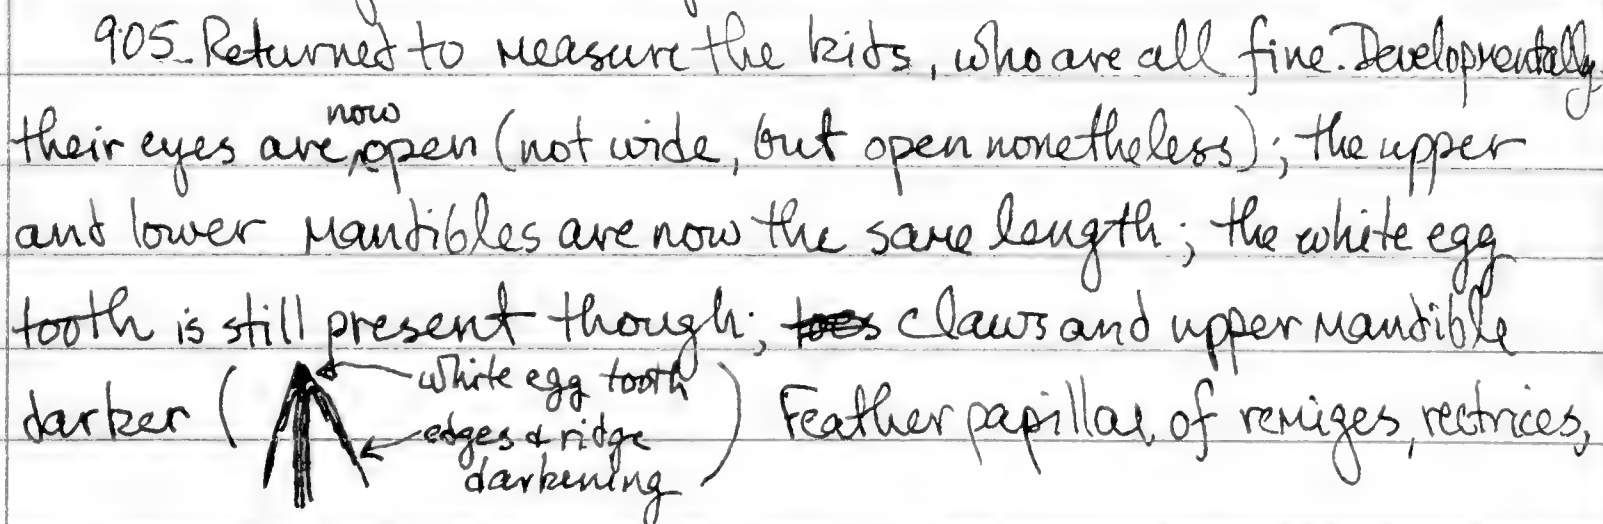 905. Returned to measure the kids, who are all fine. Developmentally
their eyes are now open (not wide, but open nonetheless); the upper
and lower mandibles are now the same length; the white egg
tooth is still present though; toes claws and upper mandible
darker ( white egg tooth
edges & ridge
darkening ) Feather papillae of remiges, rectrices,